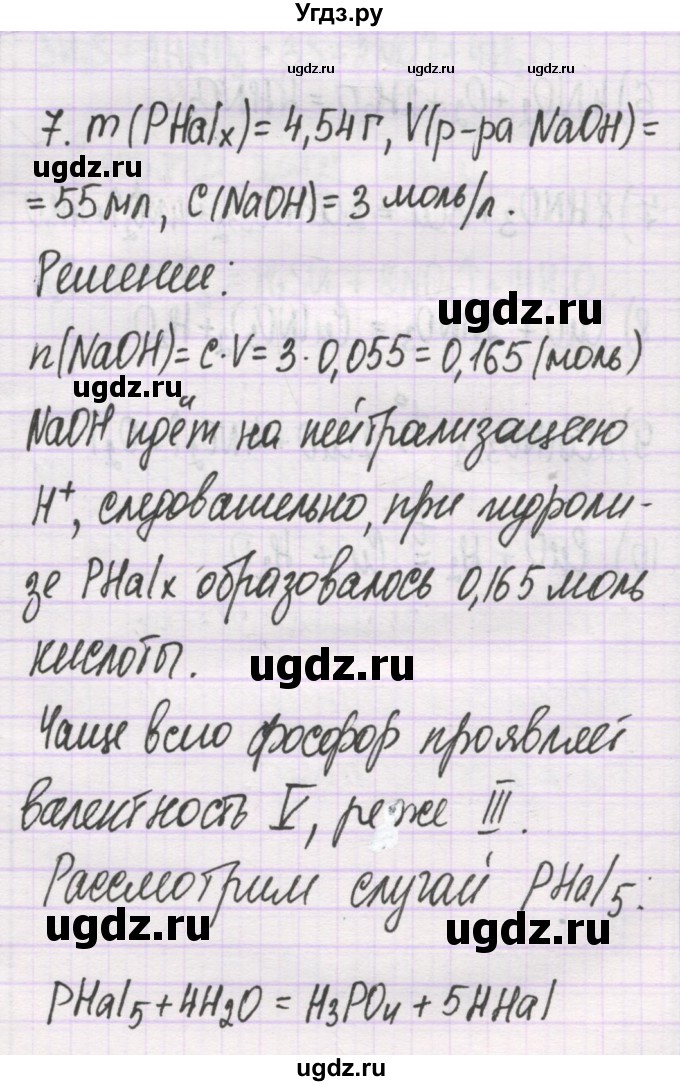 Угдз.ру
ugdz.ru ugdz.ru
7. m(PHalx) = 4,54 г, V(р-ра NaOH) =
ugdz.ru
= 55 мл, C(NaOH) = 3 моль/л.
Решение:
ugdz.ru
n(NaOH) = c·V = 3·0,055 = 0,165 (моль)
ugdz.ru
NaOH идёт на нейтрализацию
H⁺, следовательно, при гидроли-
зе PHalx образовалось 0,165 моль
кислоты.
ugdz.ru
Чаще всего фосфор проявляет
валентность V, реже III.
Рассмотрим случай PHal₅:
ugdz.ru ugdz.ru
PHal₅ + 4H₂O = H₃PO₄ + 5HHal
ugdz.ru